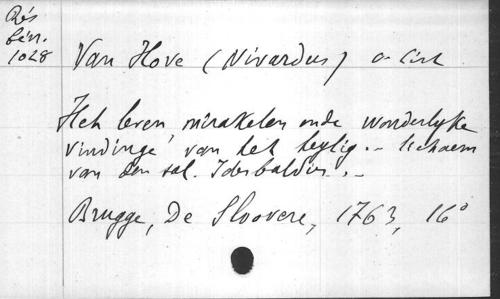 Rés
bérr.
1028
Van Hove (Nivardus) o. Cist
Het leven, mirakelen ende wonderlyke
vindinge van het heylig.- lichaem
van den sal. Idesbaldus.-
Brugge, De Sloovere, 1763, 16°